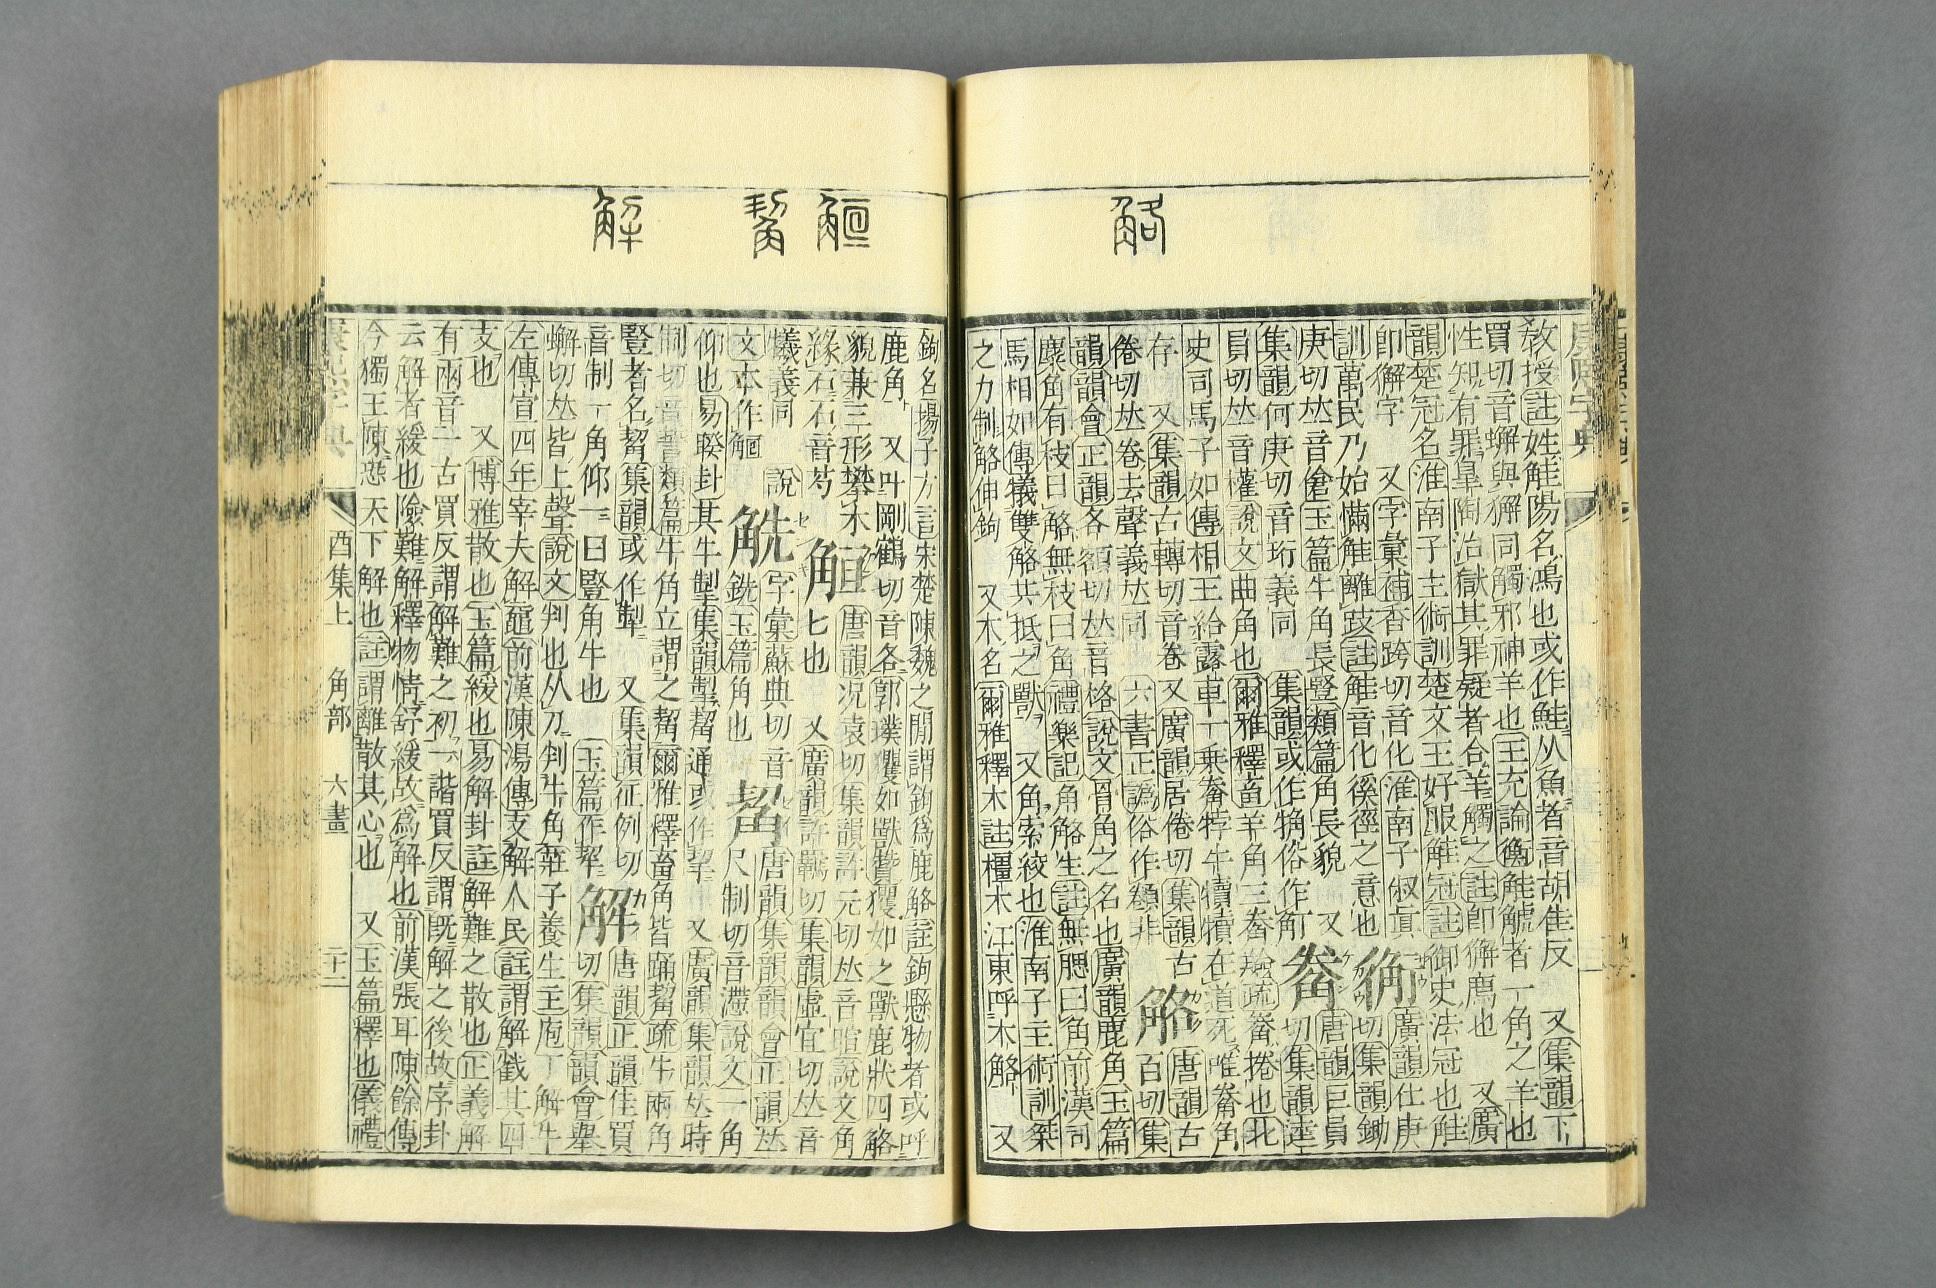 觡
敎授註姓觟陽名鴻也或作鮭从魚者音胡佳反 又集韻下
買切音蟹與獬同觸邪神羊也王充論衡觟䚦者一角之羊也
性知有罪皐陶治獄其罪疑者令羊觸之註卽獬廌也 又廣
韻楚冠名淮南子主術訓楚文王好服觟冠註御史法冠也觟
卽獬字 又字彙補杏跨切音化淮南子俶眞
訓萬民乃始慲觟離跂註觟音化徯徑之意也 廣韻仕庚切集韻鋤
庚切𠀤音傖玉篇牛角長豎類篇角長貌 又
集韻何庚切音珩義同 集韻或作觕俗作觘 唐韻巨員切集韻逵
員切𠀤音權說文曲角也爾雅釋畜羊角三觠羷疏觠捲也北
史司馬子如傳相王給露車一乗觠牸牛犢犢在道死唯觠角
存 又集韻古轉切音卷 又廣韻居倦切集韻古
倦切𠀤卷去聲義𠀤同 六書正譌俗作觠非 觡 唐韻古百切集
韻韻會正韻各額切𠀤音格說文骨角之名也廣韻鹿角玉篇
麋角有枝曰觡無枝曰角禮樂記角觡生註無䚡曰角前漢司
馬相如傳犧雙觡共抵之獸 又角索絞也淮南子主術訓桀
之力制觡伸鉤 又木名爾雅釋木註橿木江東呼木觡 又
觛 䚅 解
鉤名揚子方言宋楚陳魏之閒謂鉤爲鹿觡註鉤懸物者或呼
鹿角 又叶剛鶴切音各郭璞玃如獸贊玃如之獸鹿狀四觡
貌兼三形攀木
緣石石音芍 唐韻況袁切集韻許元切𠀤音暄說文角
匕也 又廣韻許羈切集韻虛宜切𠀤音
犧義同 說
文本作觛 觥 字彙蘇典切音
銑玉篇角也 䚅 唐韻集韻韻會正韻𠀤
尺制切音滯說文一角
仰也易睽卦其牛掣集韻掣䚅通或作挈 又廣韻集韻𠀤時
制切音誓類篇牛角立謂之䚅爾雅釋畜角皆踊䚅疏牛兩角
豎者名䚅集韻或作觢 又集韻征例切
音制一角仰一曰豎角牛也 玉篇作觢 解 唐韻正韻佳買切集韻韻會舉
蟹切𠀤皆上聲說文判也从刀判牛角莊子養生主庖丁解牛
左傳宣四年宰夫解黿前漢陳湯傳支解人民註謂解截其四
支也 又博雅散也玉篇緩也易解卦註解難之散也正義解
有兩音一古買反謂解難之初一諧買反謂旣解之後故序卦
云解者緩也險難解釋物情舒緩故爲解也前漢張耳陳餘傳
今獨王陳恐天下解也註謂離散其心也 又玉篇釋也儀禮
酉集上 角部 六畫